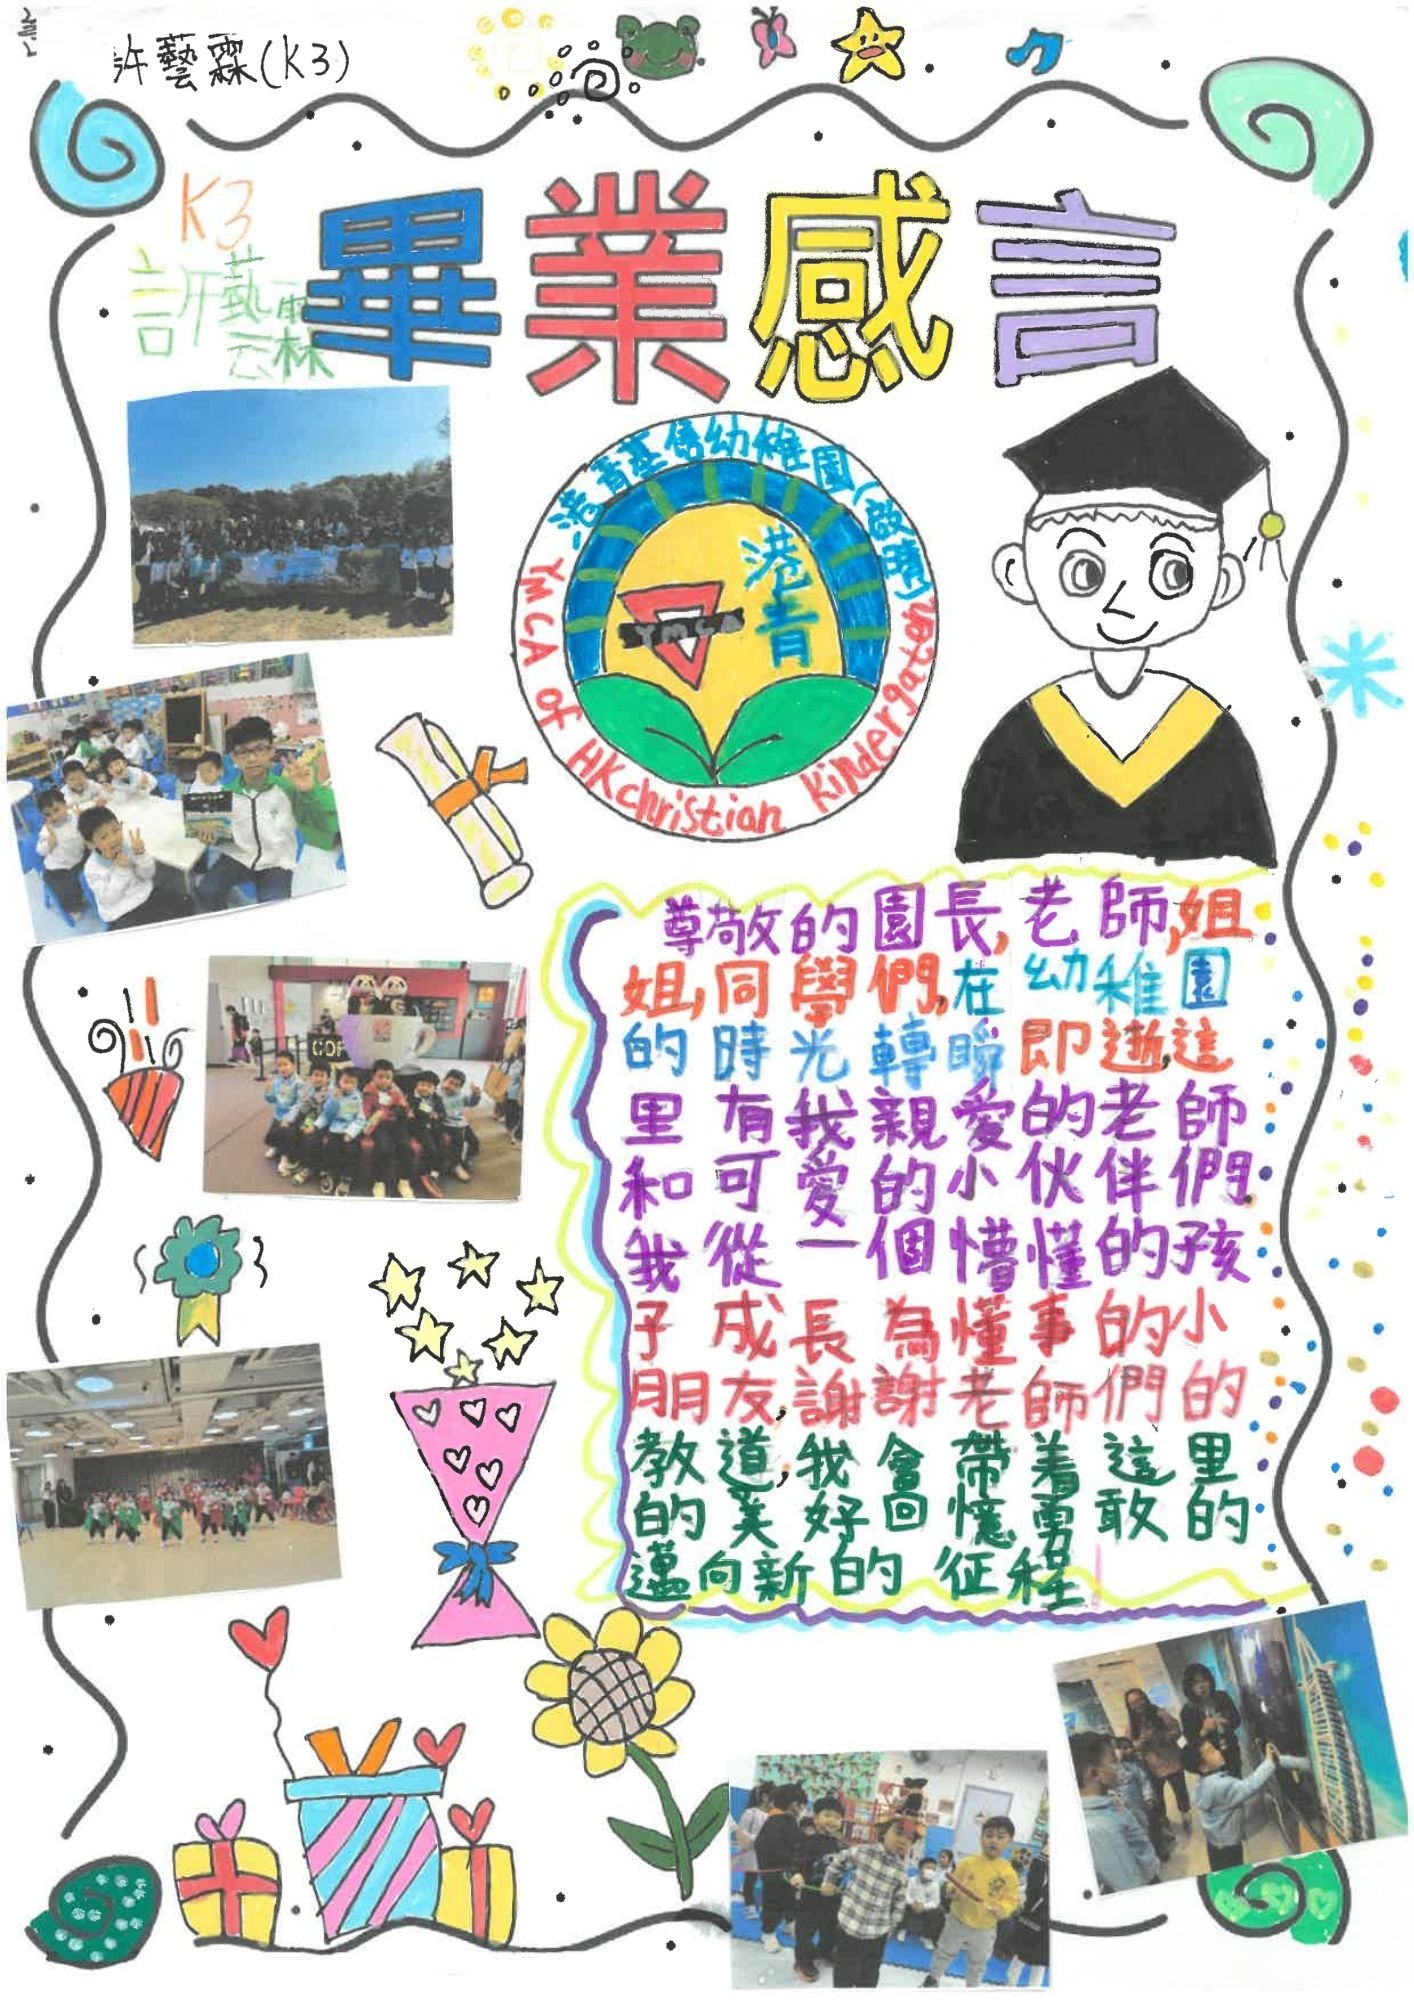 許藝霖(K3)
K3
許藝霖
畢業感言
港青基信幼稚園(啟晴)
港青
YMCA
YMCA of HK christian Kindergaten
尊敬的園長,老師,姐
姐,同學們,在幼稚園
的時光轉瞬即逝,這
里有我親愛的老師
和可愛的小伙伴們
我從一個懵懂的孩
子成長為懂事的小
朋友,謝謝老師們的
教道,我會帶着這里
的美好回憶勇敢的
邁向新的征程!